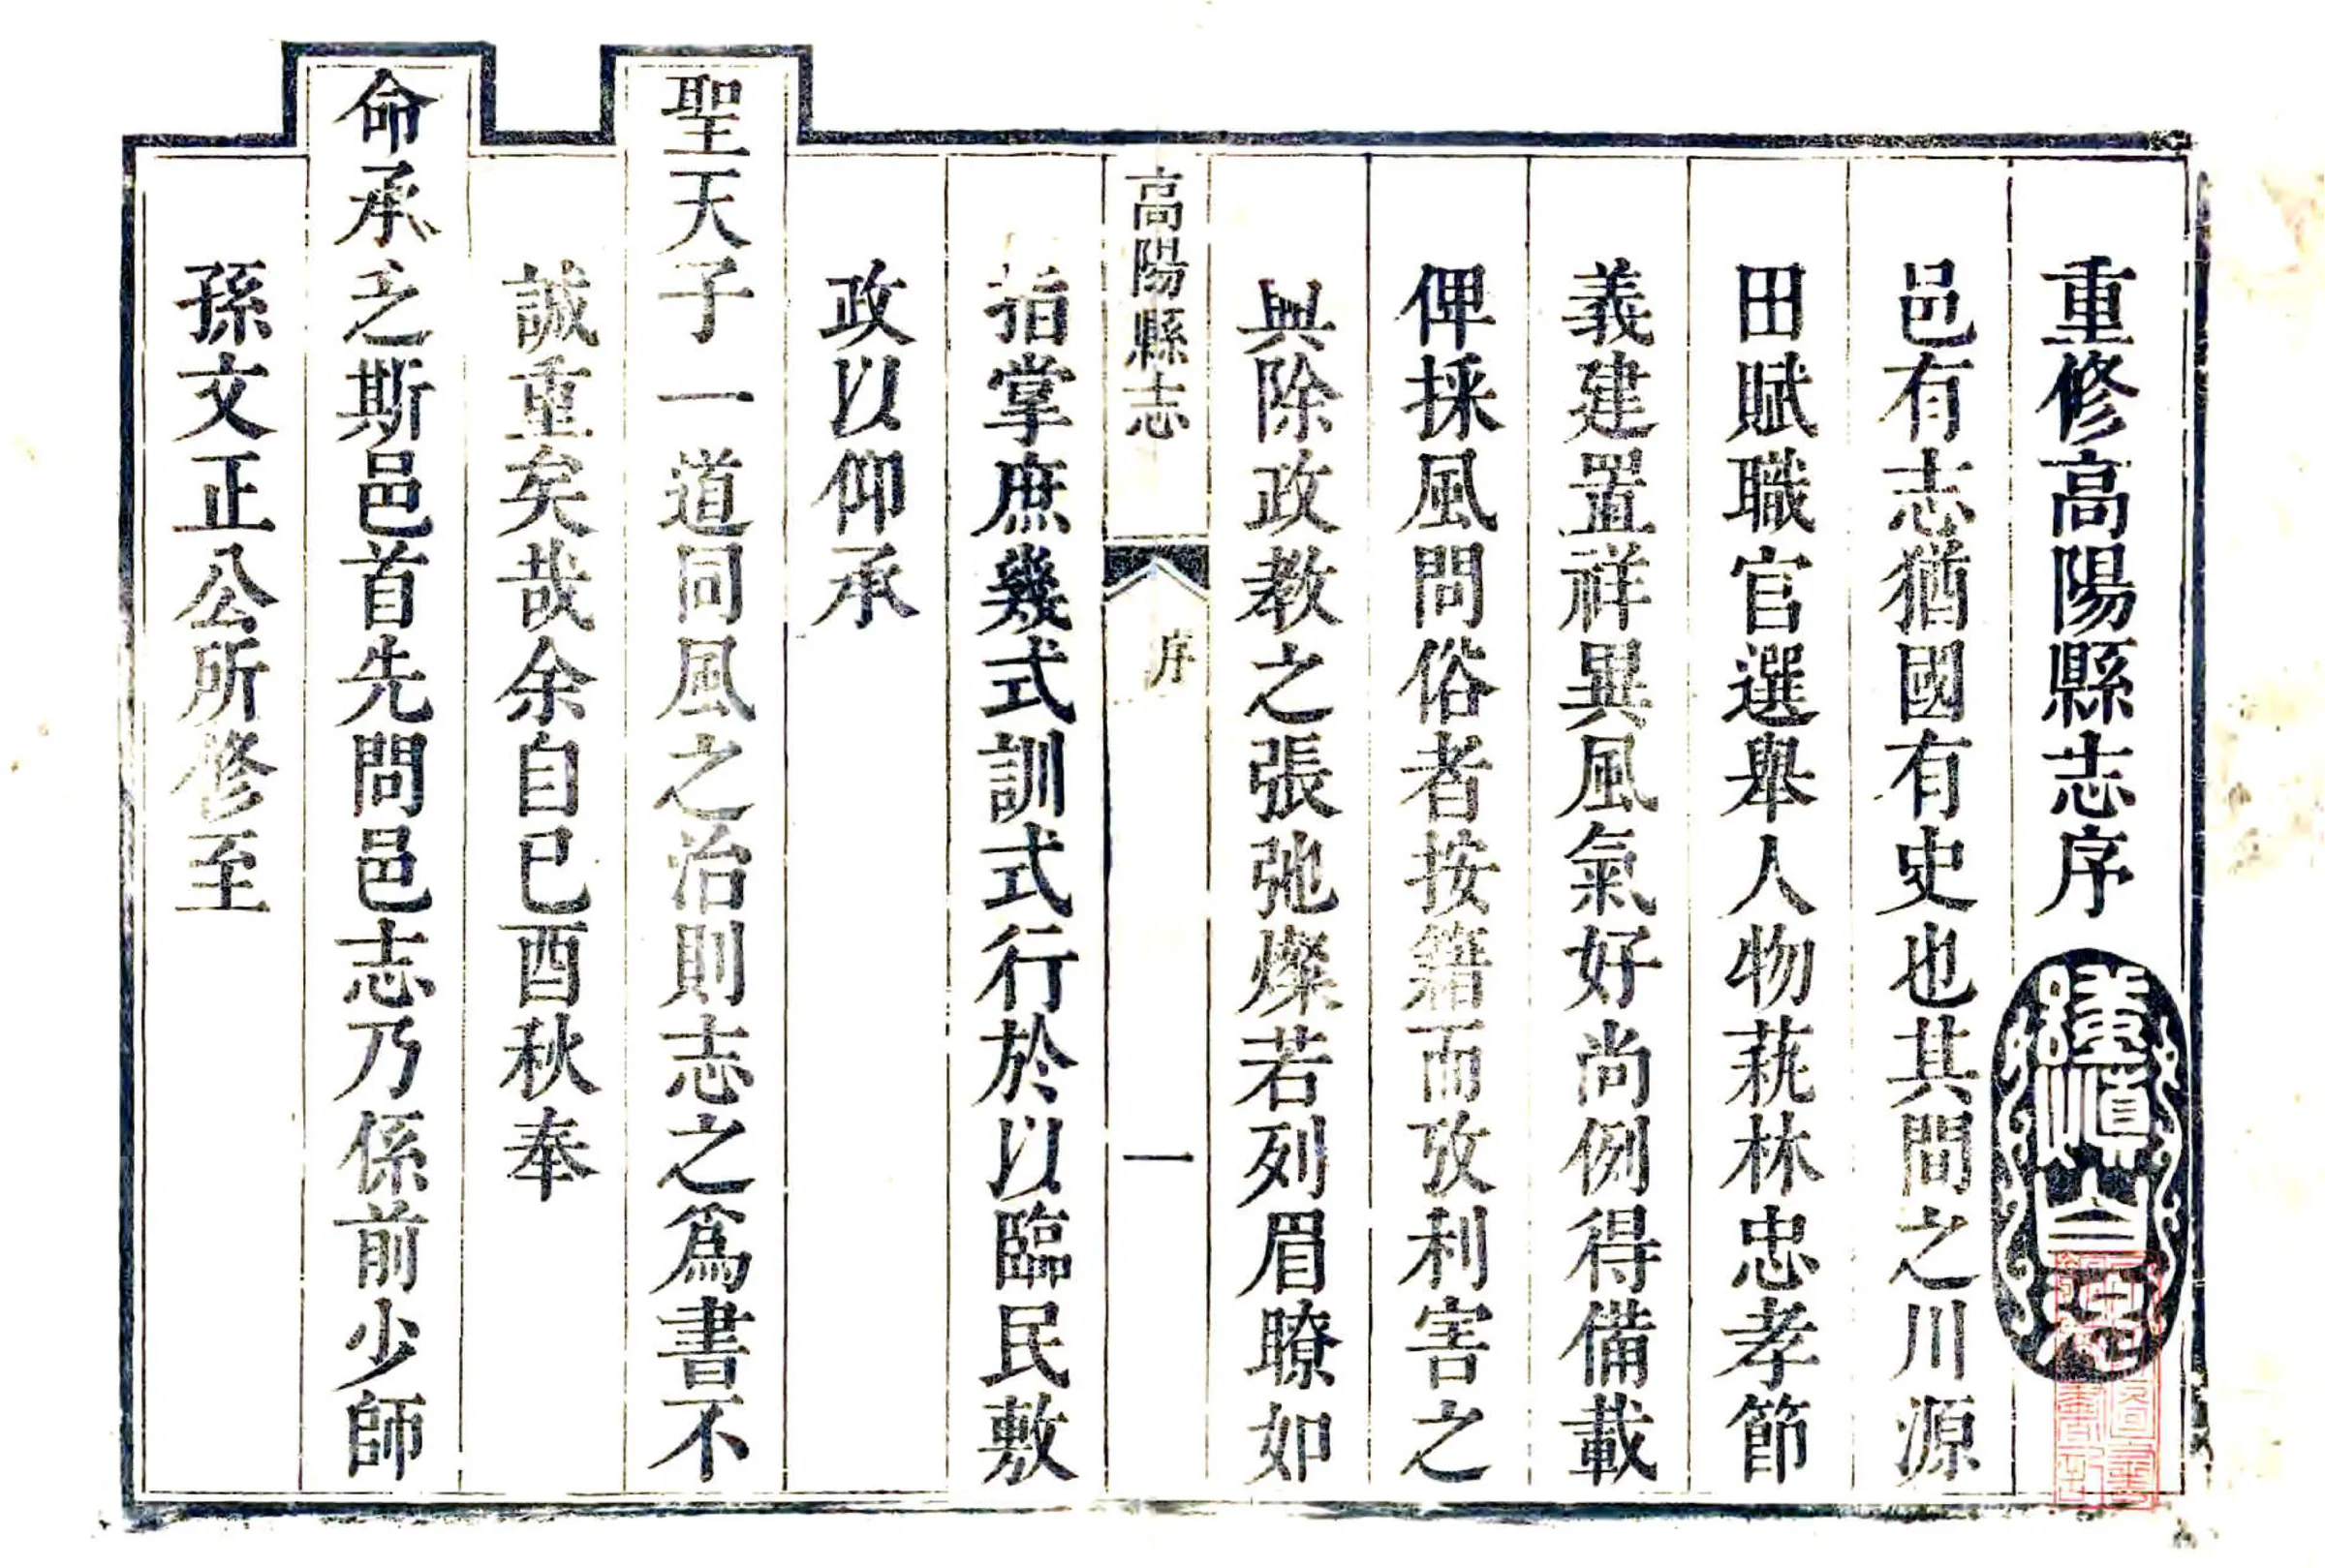 重修高陽縣志序
邑有志猶國有史也其間之川源
田賦職官選舉人物蓺林忠孝節
義建置祥異風氣好尚例得備載
俾採風問俗者按籍而攷利害之
興除政教之張弛燦若列眉瞭如
高陽縣志 序 一
指掌庶幾式訓式行於以臨民敷
政以仰承
聖天子一道同風之治則志之爲書不
誠重矣哉余自已酉秋奉
命承乏斯邑首先問邑志乃係前少師
孫文正公所修至